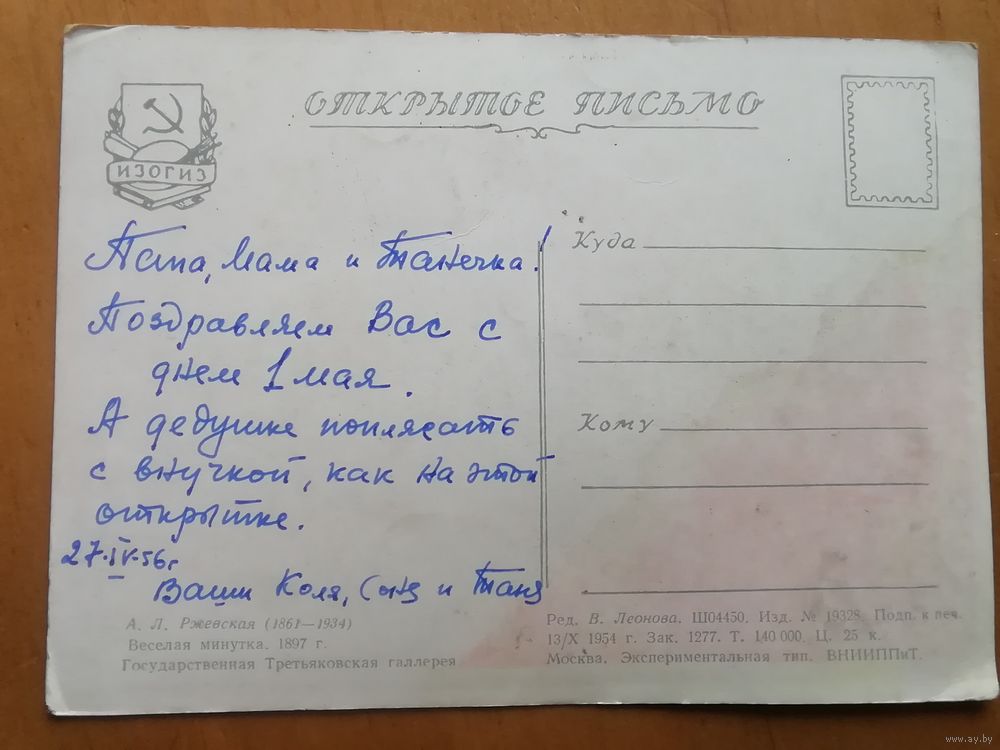 ОТКРЫТОЕ ПИСЬМО
ИЗОГИЗ
Папа, Мама и Танечка!
Поздравляем Вас с
днем 1 мая.
А дедушке поплясать
с внучкой, как на этой
открытке.
27.IV.56г
Ваши Коля, Соня и Таня
Куда
Кому
А. Л. Ржевская (1861—1934)
Веселая минутка. 1897 г.
Государственная Третьяковская галлерея
Ред. В. Леонова. Ш04450. Изд. № 19328. Подп. к печ.
13/X 1954 г. Зак. 1277. Т. 140 000. Ц. 25 к.
Москва. Экспериментальная тип. ВНИИППиТ.
www.ay.by